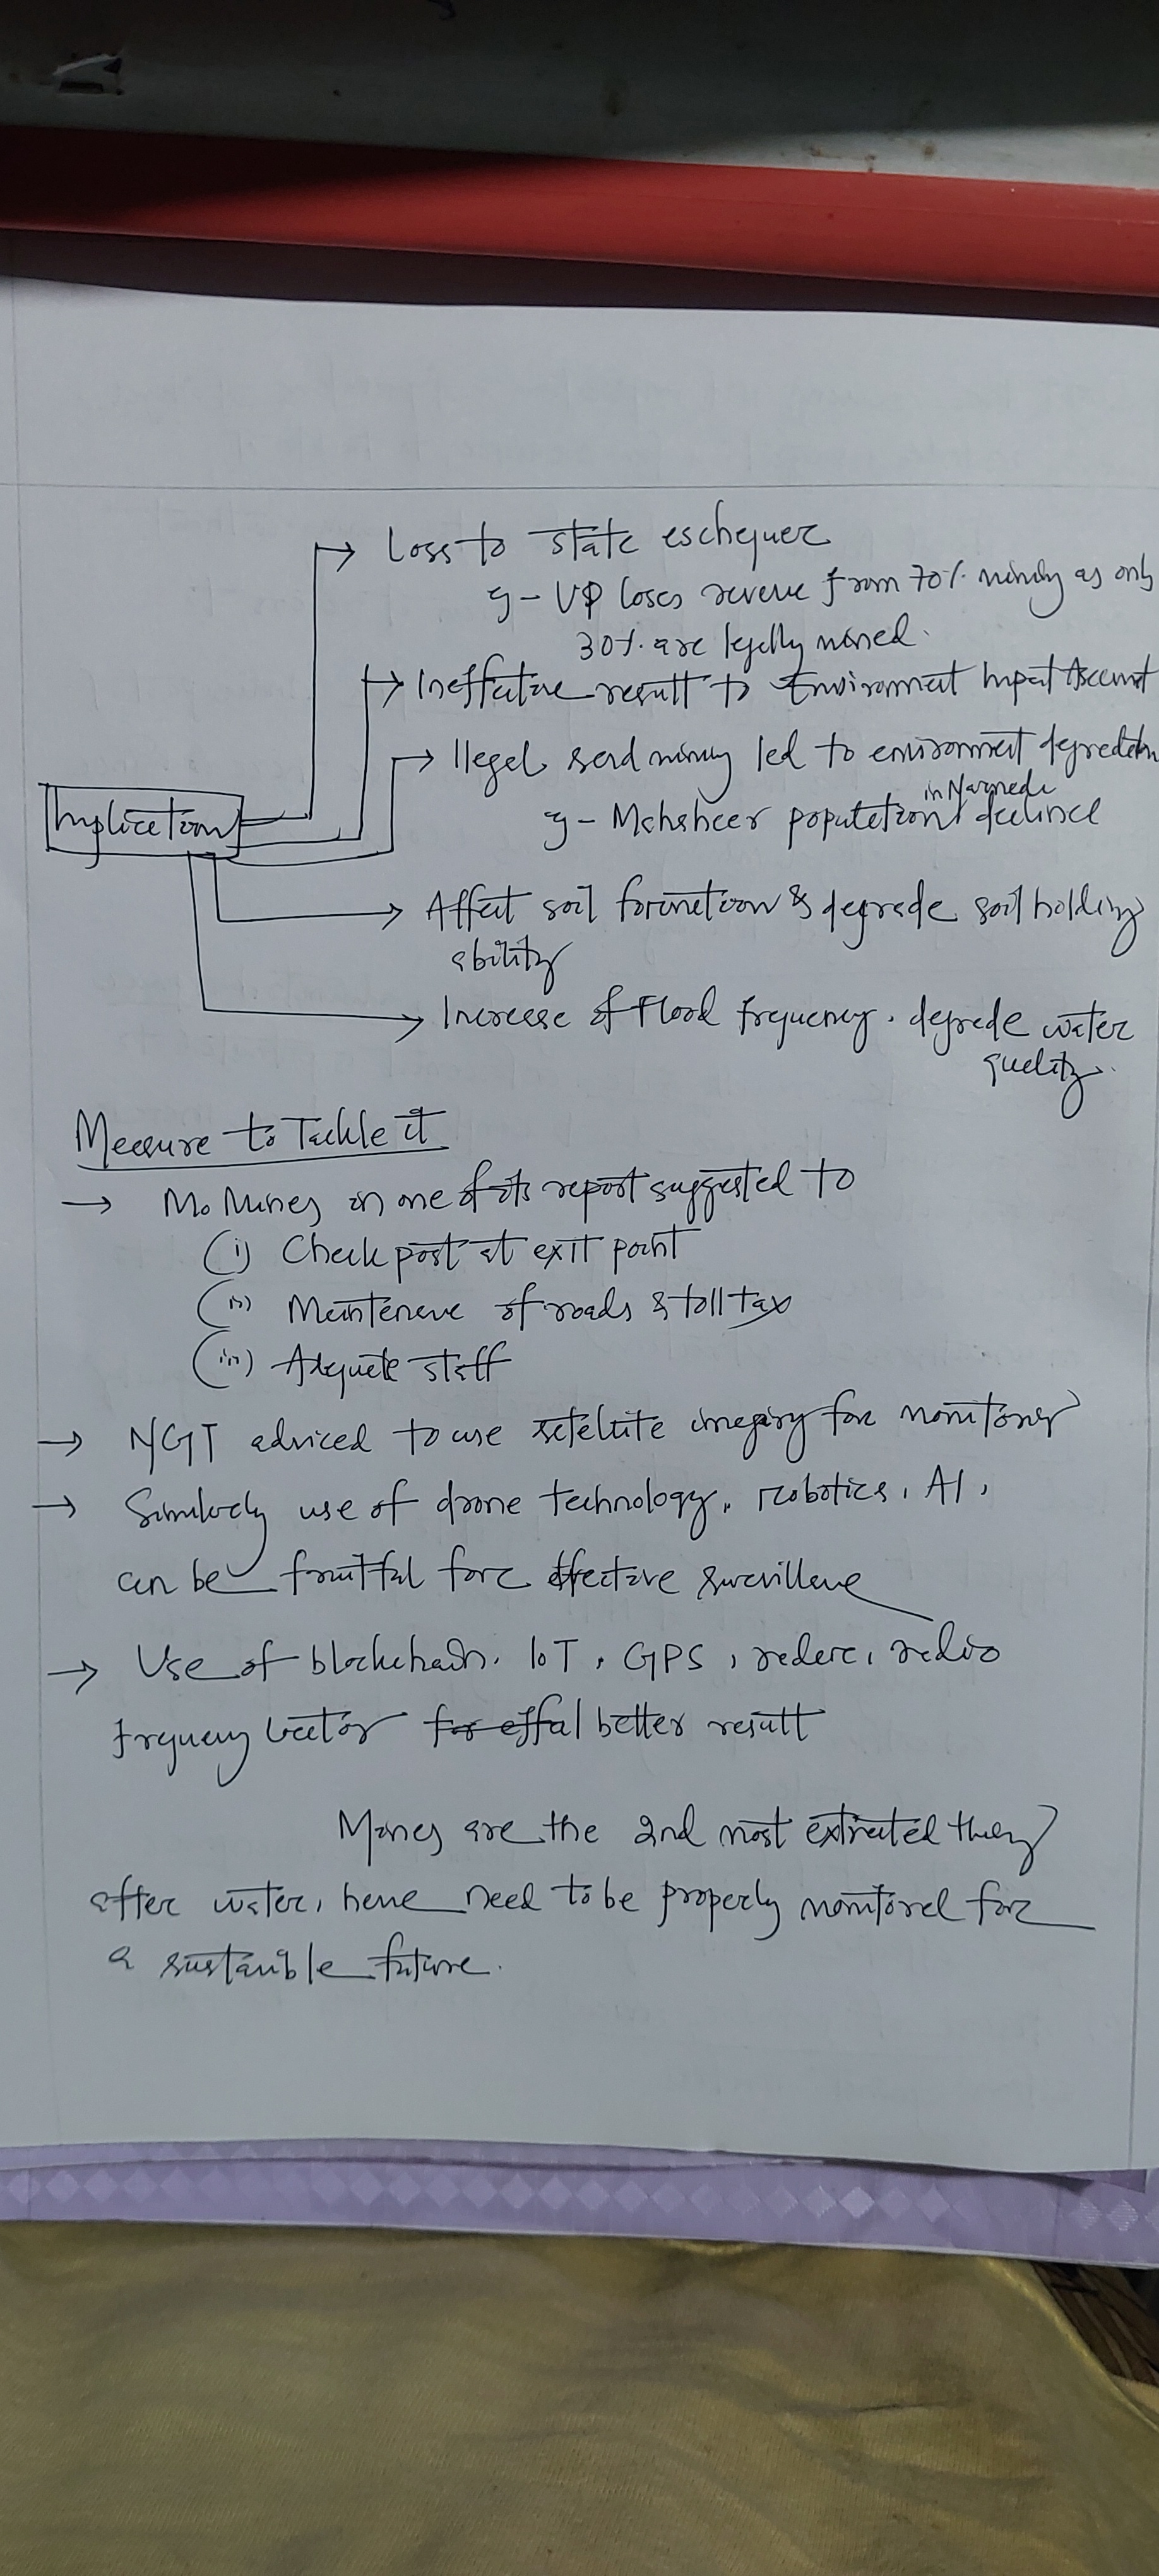 Loss to state eschequer
eg - UP loses revenue from 70% mining as only
30% are legally mined.
Ineffective result to Environment Impact Assemnt
Illegal sand mining led to environment degradation
in Narmada
eg - Mahsheer population decline
Implication
Affect soil formation & degrade soil holding
ability
Increase of Flood frequency, degrade water
quality.
Measure to Tackle it
→ Mo Mines in one of its report suggested to
(i) Check post at exit point
(ii) Maintenance of roads & toll tax
(iii) Adequate staff
→ NGT adviced to use satellite imagery for monitoring
→ Similarly use of drone technology, robotics, AI,
can be fruitful for effective surveillance
→ Use of blockchain, IoT, GPS, radar, radio
frequency better result
Mines are the 2nd most extracted thing
after water, hence need to be properly monitored for
a sustaible future.